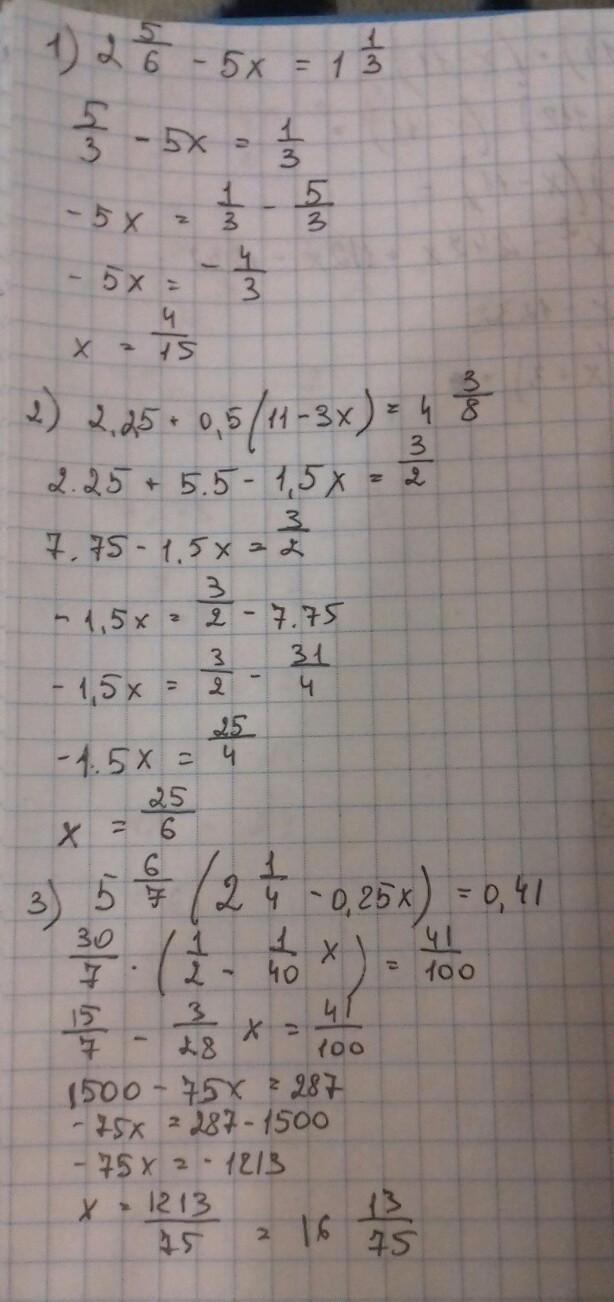 1) 2 5/6 - 5x = 1 1/3
5/3 - 5x = 1/3
-5x = 1/3 - 5/3
-5x = -4/3
x = 4/15
2) 2.25 + 0,5(11-3x) = 4 3/8
2.25 + 5.5 - 1,5x = 3/2
7.75 - 1.5x = 3/2
-1,5x = 3/2 - 7.75
-1,5x = 3/2 - 31/4
-1.5x = 25/4
x = 25/6
3) 5 6/7 (2 1/4 - 0,25x) = 0,41
30/7 · (1/2 - 1/40 x) = 41/100
15/7 - 3/28 x = 41/100
1500 - 75x = 287
-75x = 287-1500
-75x = -1213
x = 1213/75 = 16 13/75